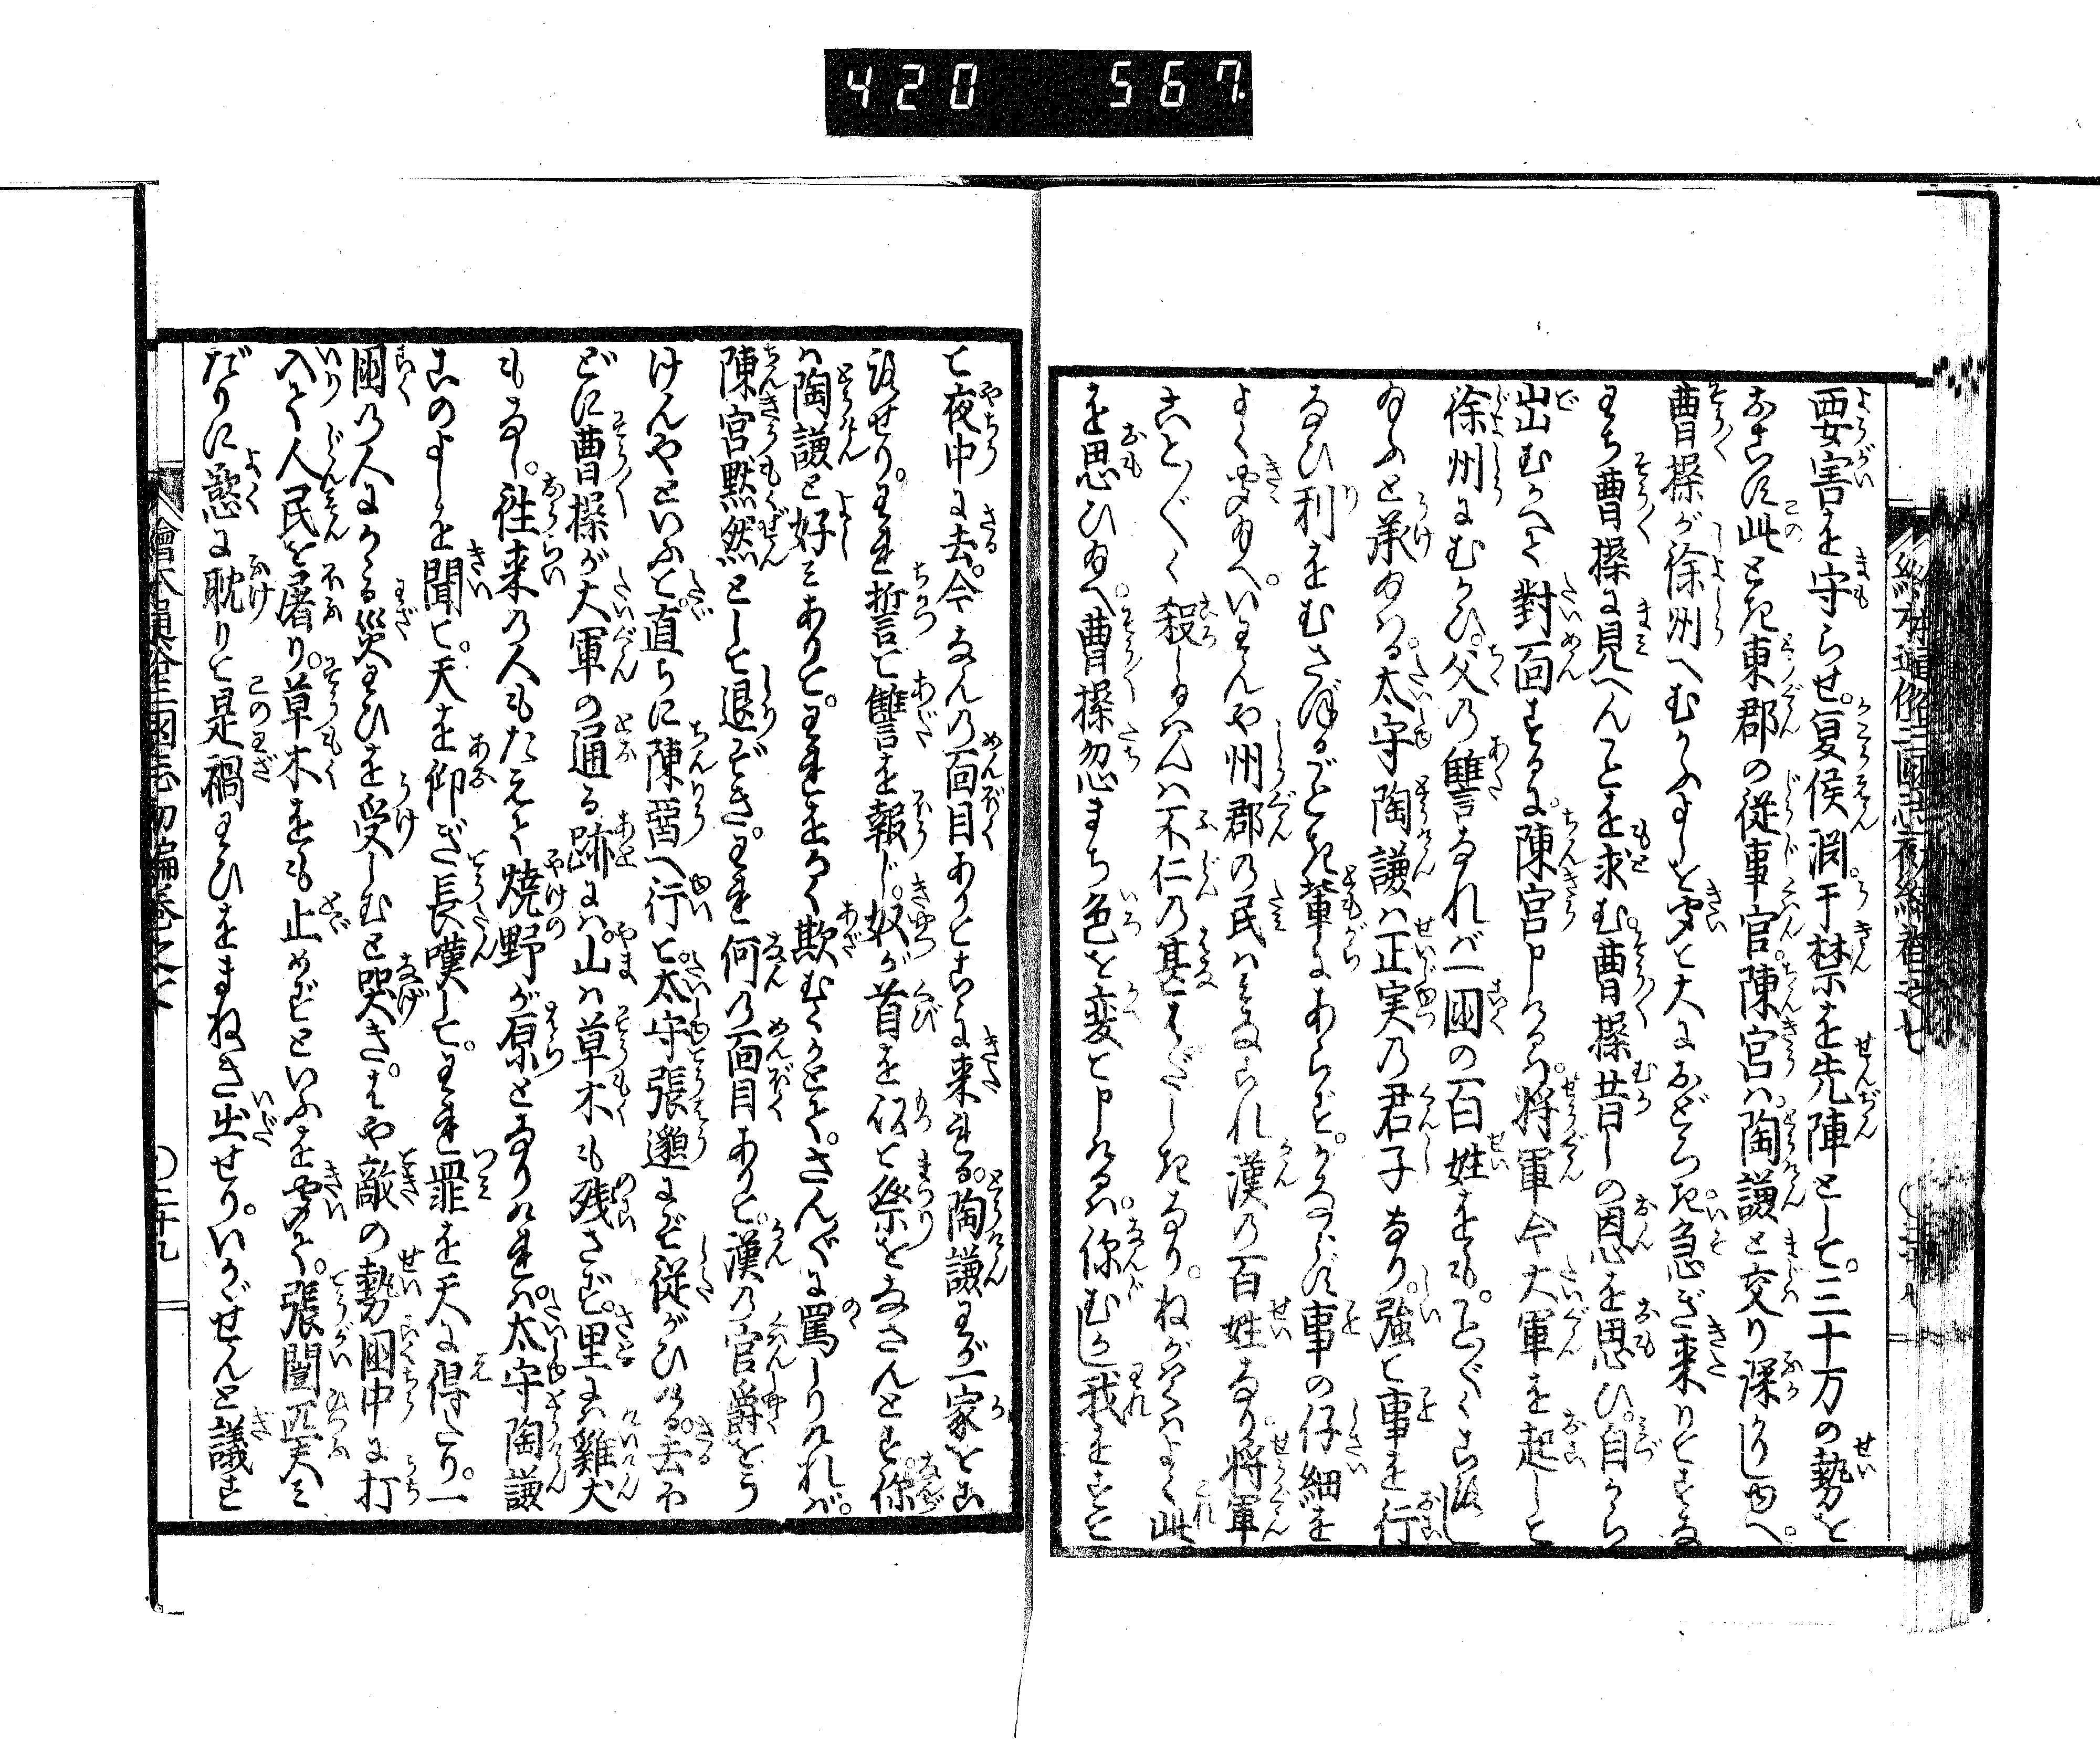 420 567
要害を守らせ。夏侯淵。于禁を先陣として。三十万の勢を
おこす此とき東郡の従事官。陳宮ハ。陶謙と交り深かりしゆへ。
曹操が徐州へむかふよしを聞て大におどろき。急ぎ来りてすな
わち曹操に見へんことを求む。曹操昔しの恩を思ひ。自から
出むかへて對面するに。陳宮申けるハ。将軍今大軍を起して
徐州にむかひ。父の讐なれバ一国の百姓をも。ことごとく
ゆふと承ゆはる。太守陶謙ハ正実の君子なり。強て事を行
なひ利をむさぼるごとき輩にあらず。かならず事の仔細を
よく聞ゆへ。いわんや州郡の民ハみなこれ漢の百姓なり。将軍
ことごとく殺しゆハんハ不仁の甚はだしきなり。ねがハくハよく此
を思ひゆへ。曹操忽まち色を変て申けるハ。你むかし我をすて
て夜中に去。今なんの面目ありてこゝに来れる。陶謙わが一家をこ
ろせり。われ誓て讐を報じ。奴が首を取て祭をなさんとす。你
ハ陶謙と好ミありて。われをよく欺むくかとて。さんざんに罵しりけれバ。
陳宮黙然として退ぞき。われ何の面目ありて。漢の官爵をう
けんやといふて。直ちに陳留へ行て。太守張邈にぞ従がひける。去ほ
どに曹操が大軍の通る跡にハ。山ハ草木も残さず。里にハ雞犬
もなし。往来の人もたえて焼野が原となりけれバ。太守陶謙
このよしを聞て。天を仰ぎ長嘆して。われ罪を天に得たり。一
国の人にかゝる災ひを受しむと哭き。はや敵の勢国中に打
入て人民を屠り。草木をも止めずといふを聞て。張闓匹夫ミ
だりに慾に耽りて是禍わひをまねき出せり。いかゞせんと議す